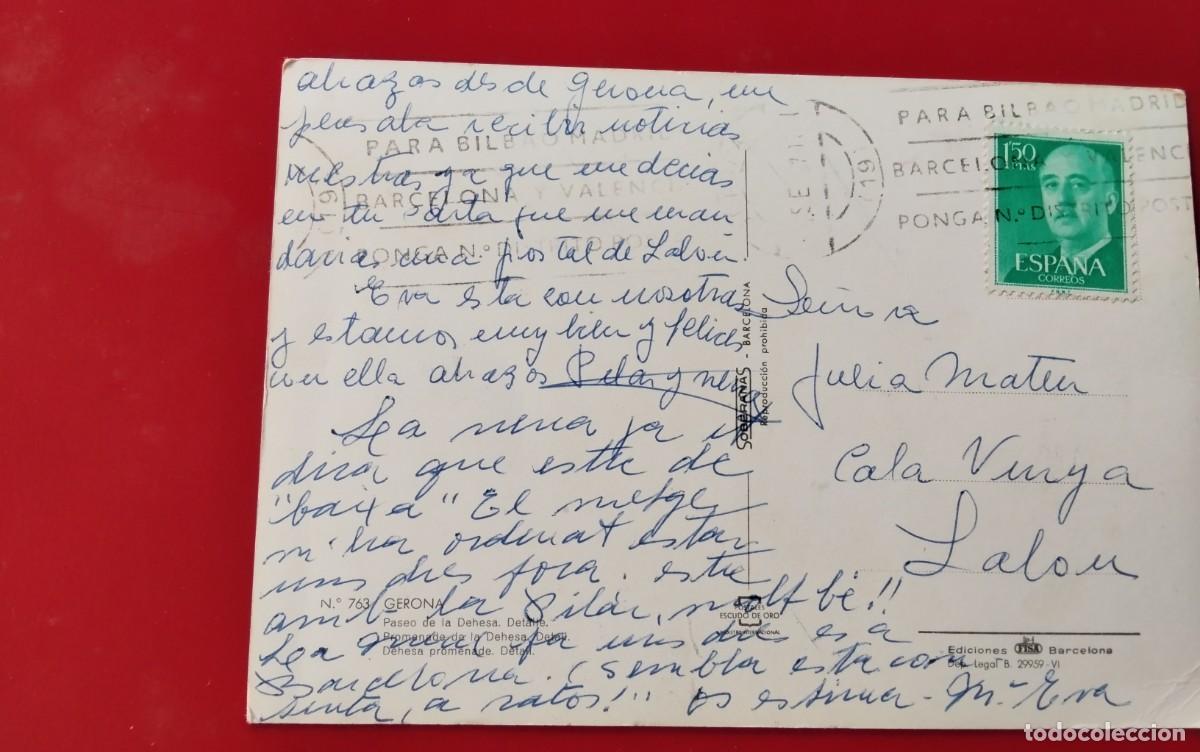 abrazos desde Gerona, me
pensaba recibir noticias
vuestras ya que me decias
en tu carta que me man
darias una postal de Salou
Eva esta con nosotras
y estamos muy bien y felices
con ella abrazos Pilar y nena
La nena ja us
dira que estic de
"baixa" El metge
m'ha ordenat estar
uns dies fora. estic
amb la Pilar, molt bé!!
La gran fa uns dies es a
Barcelona. (Sembla esta con
tenta, a ratos!" os estima - Mª Eva
PARA BILBAO MADRID
BARCELONA Y VALENCI
PONGA N.º DISTRITO POS
PARA BILBAO MADRID
BARCELONA VALENCI
PONGA N.º DISTRITO POST
1'50
PTAS
ESPAÑA
CORREOS
Señora
Julia Mateu
Cala Vinya
Salou
SOBERANAS - BARCELONA
Reproducción prohibida
N.º 763 GERONA
Paseo de la Dehesa. Detalle.
Promenade de la Dehesa. Detail.
Dehesa promenade. Detail.
POSTALES
ESCUDO DE ORO
Ediciones FISA Barcelona
Dep. Legal B. 29959-VI
todocoleccion